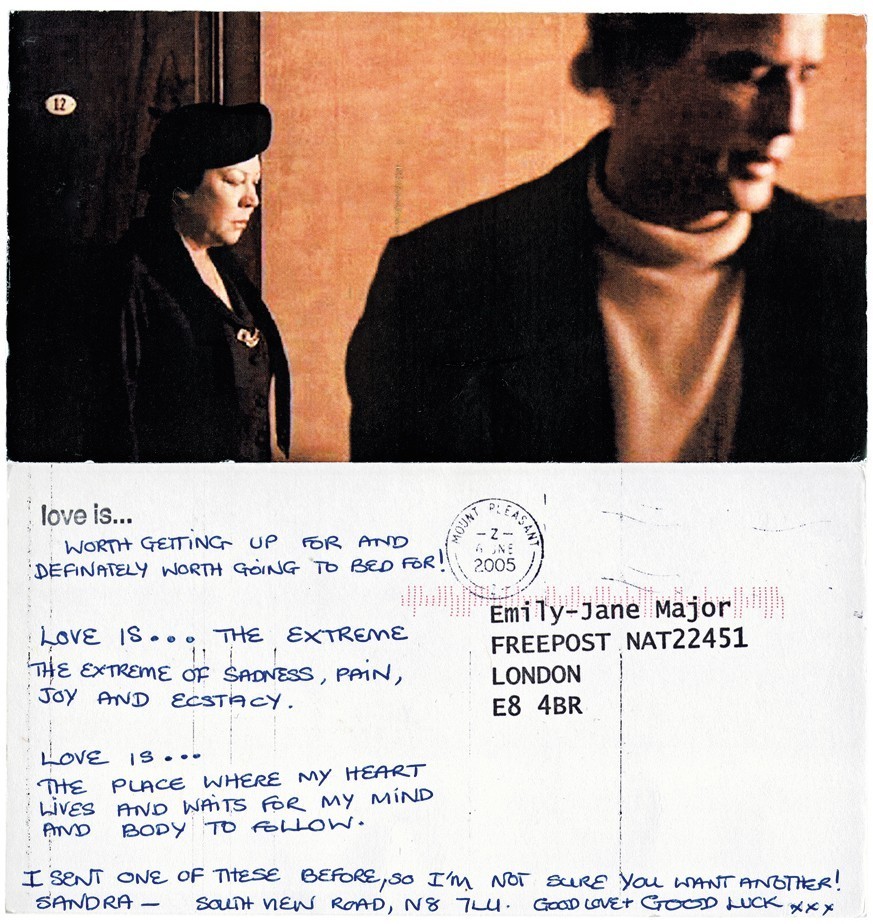 12
love is...
WORTH GETTING UP FOR AND
DEFINATELY WORTH GOING TO BED FOR!
LOVE IS... THE EXTREME
THE EXTREME OF SADNESS, PAIN,
JOY AND ECSTACY.
LOVE IS...
THE PLACE WHERE MY HEART
LIVES AND WAITS FOR MY MIND
AND BODY TO FOLLOW.
I SENT ONE OF THESE BEFORE, SO I'M NOT SURE YOU WANT ANOTHER!
SANDRA — SOUTH VIEW ROAD, N8 7LU. GOOD LOVE + GOOD LUCK xxx
MOUNT PLEASANT
-2-
2005
Emily-Jane Major
FREEPOST NAT22451
LONDON
E8 4BR